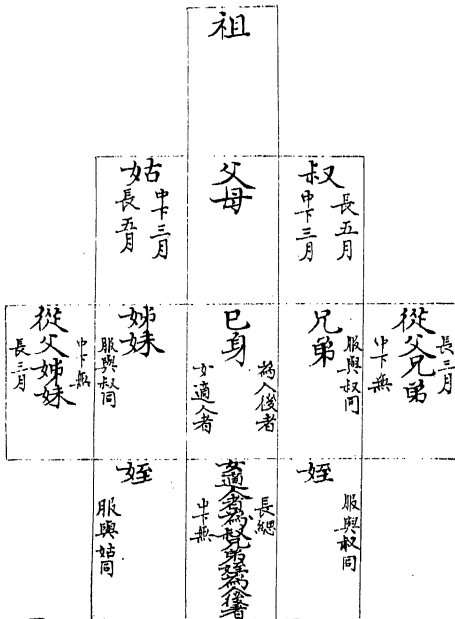 祖
叔
長五月
中下三月
父母
姑
中下三月
長五月
從父兄弟
長三月
中下無
兄弟
服與叔同
巳身
為人後者
女適人者
姊妹
服與叔同
從父姊妹
中下無
長三月
姪
服與叔同
長緦
中下無
姪
服與姑同